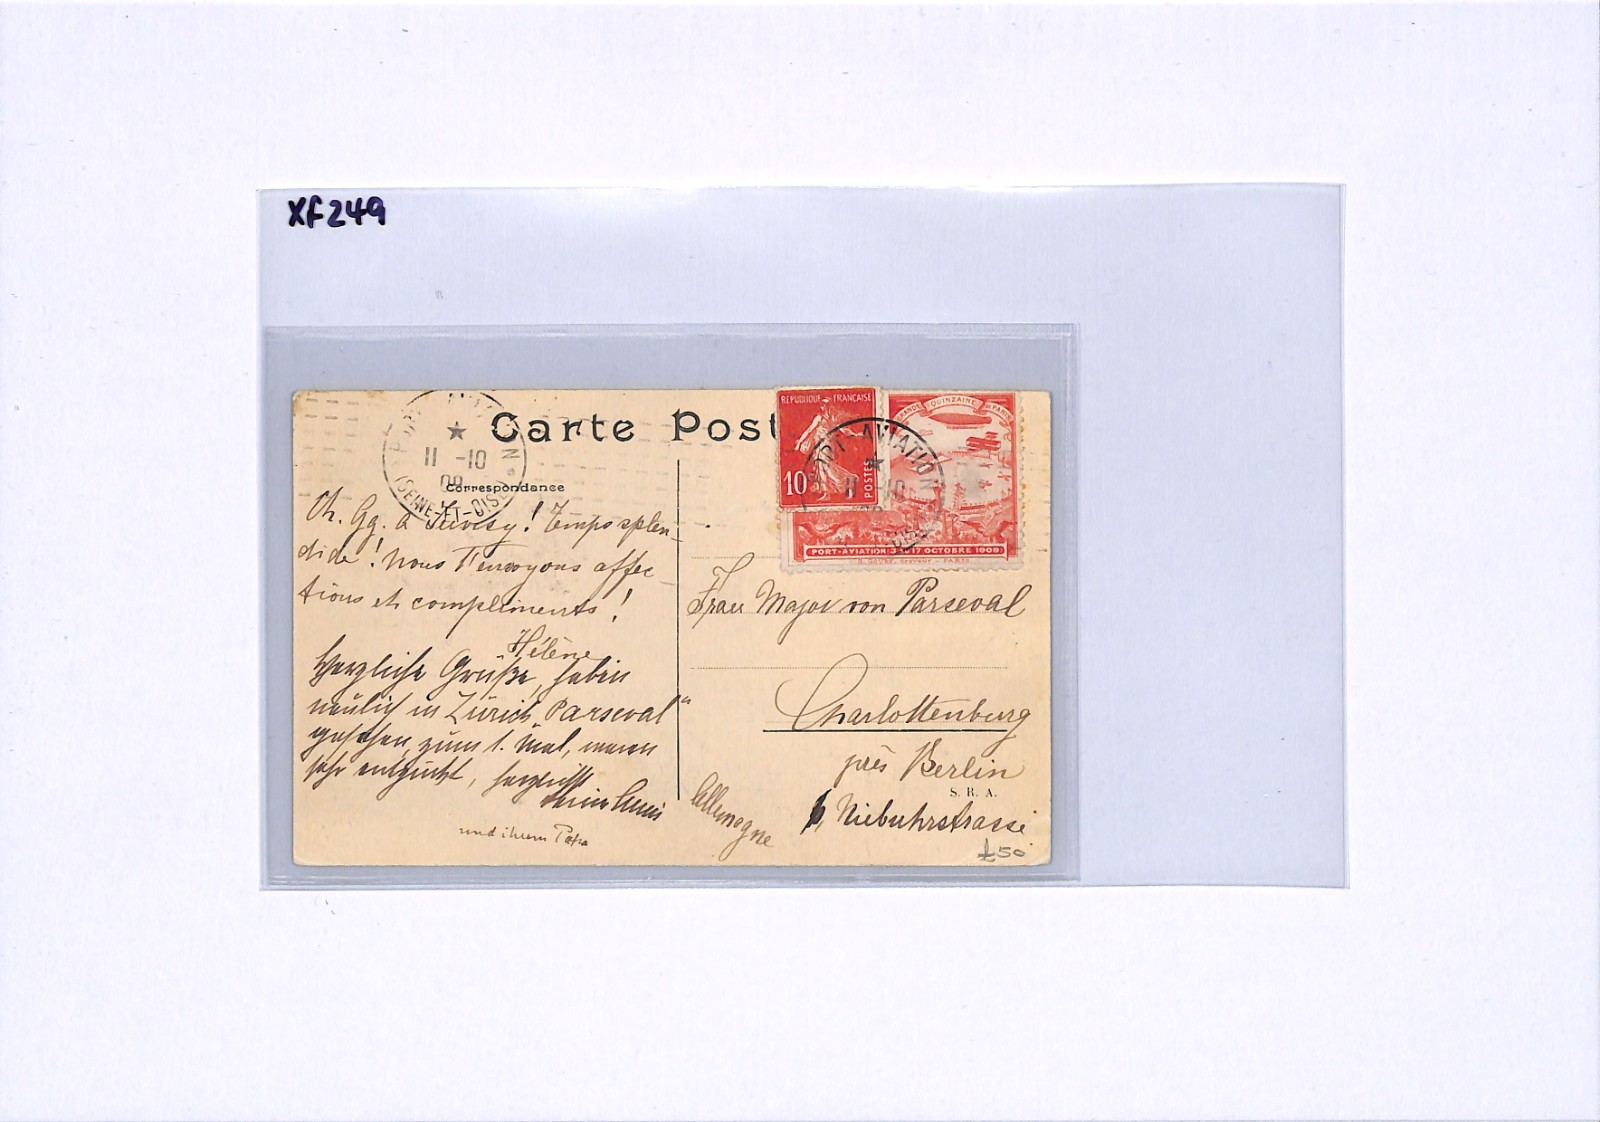 XF249
Carte Post
Correspondance
PORT-AVIATION
11 -10
09
(SEINE-ET-OISE)
REPUBLIQUE FRANÇAISE
10
POSTES
GRANDE QUINZAINE DE PARIS
PORT-AVIATION
11 -10
PORT-AVIATION 3 AU 17 OCTOBRE 1909
PARIS
Ch. Gg. à Juvisy! Temps splen-
dide! Nous t'envoyons affec-
tions et compliments!
Hélène
Herzliche Grüße, haben
neulich in Zürich „Parseval"
gesehen, zum 1. Mal, waren
sehr entzückt, herzlichst
und ihrem Papa
Frau Major von Parseval
Charlottenburg
près Berlin
S. R. A.
Niebuhrstrasse
Allemagne
£50